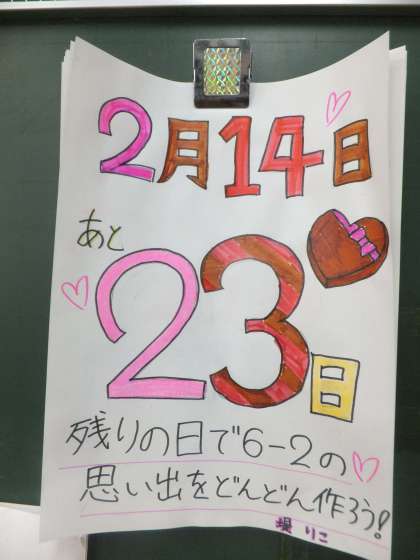 2月14日
あと
23日
残りの日で6-2の
思い出をどんどん作ろう!
りこ